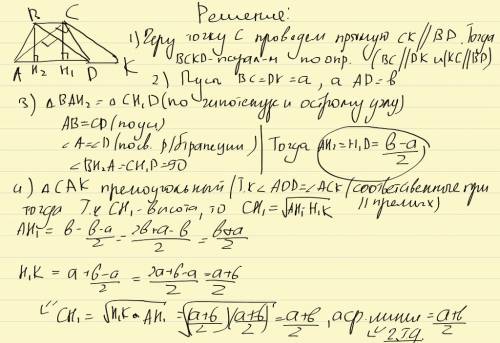 Решение:
B C
A H₂ H₁ D K
1) Через точку C проведем прямую CK//BD. Тогда
BCKD-парал-м по опр. (BC//DK и KC//BD)
2) Пусть BC=DK=a, а AD=b
3) △BAH₂=△CH₁D (по гипотенузе и острому углу)
AB=CD(по усл)
∠A=∠D(по св. р/б трапеции)
∠BH₂A=CH₁D=90
Тогда AH₂=H₁D=(b-a)/2
4) △CAK прямоугольный/Т.к ∠AOD=∠ACK(соответственные при
// прямых)
тогда Т.к CH₁-высота, то CH₁=√AH₁·H₁K
AH₁= b-(b-a)/2=(2b+a-b)/2=(b+a)/2
H₁K=a+(b-a)/2=(2a+b-a)/2=(a+b)/2
CH₁=√H₁K·AH₁=√((a+b)/2)((a+b)/2)=(a+b)/2, а ср. линия=(a+b)/2
ч.т.д